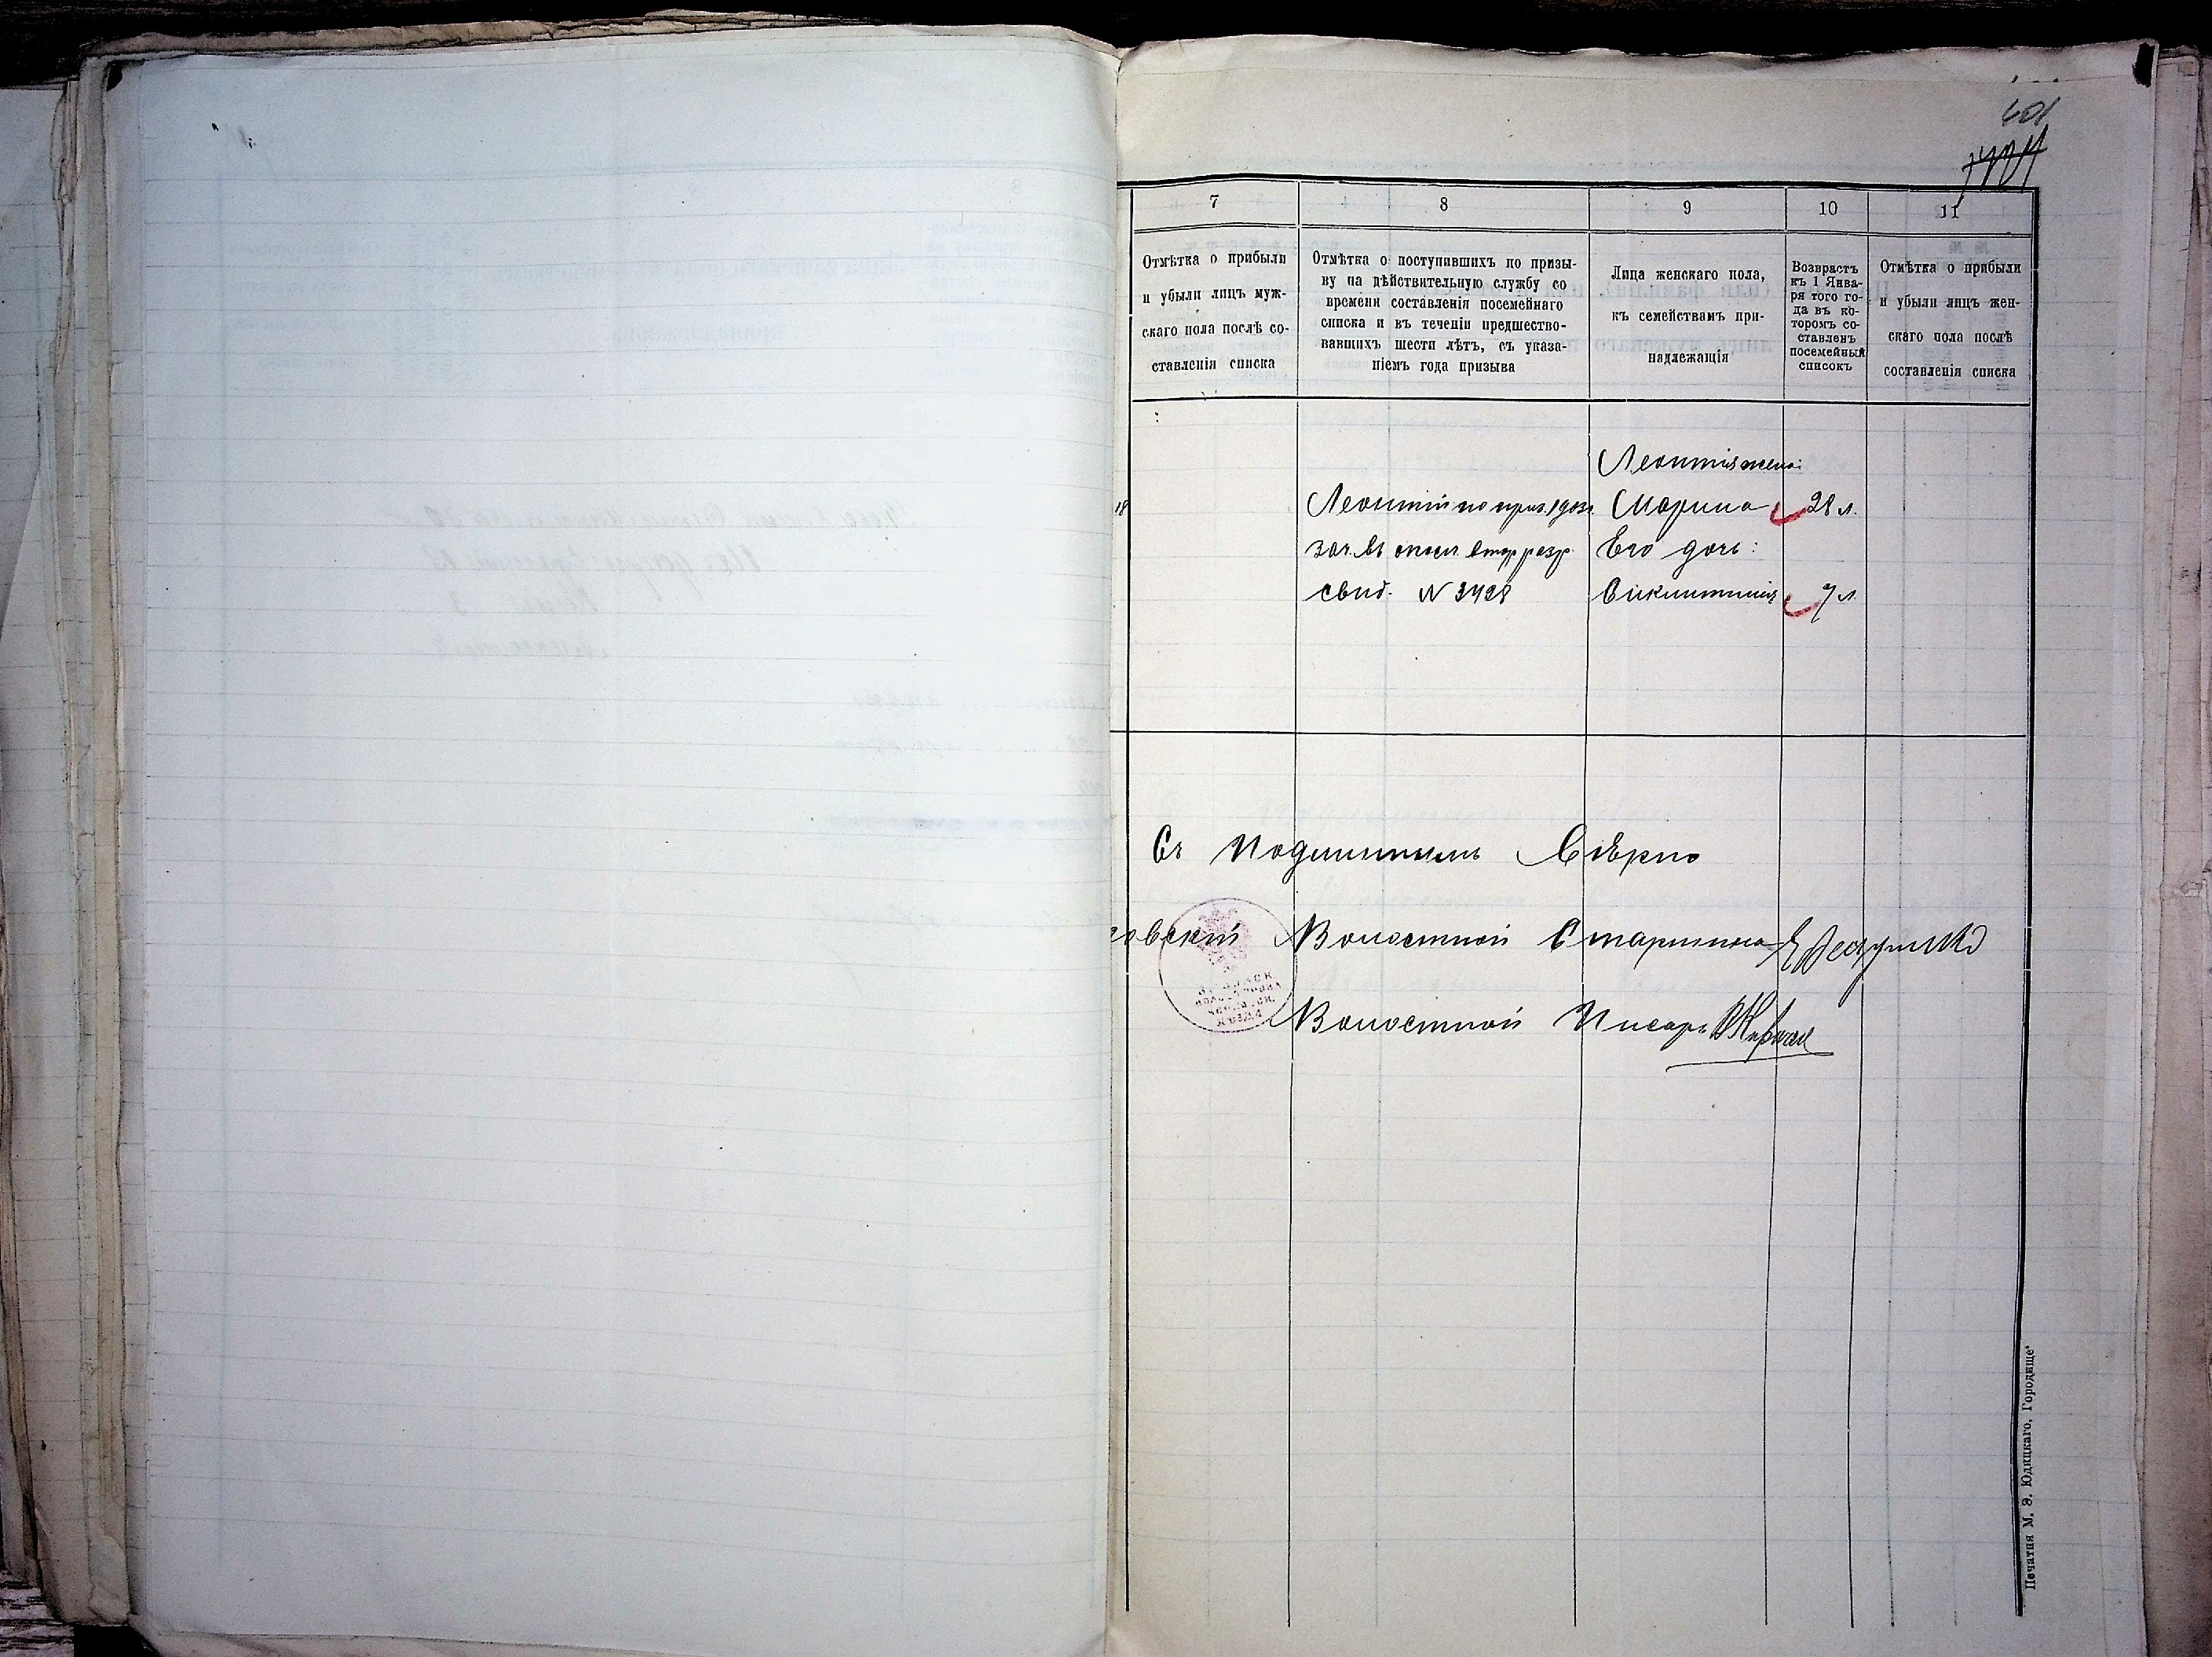 601
7
8
9
10
11
Отмѣтка о прибыли
и убыли лицъ муж-
скаго пола послѣ со-
ставленія списка
Отмѣтка о поступившихъ по призы-
ву на дѣйствительную службу со
времени составленія посемейнаго
списка и въ теченіи предшество-
вавшихъ шести лѣтъ, съ указа-
ніемъ года призыва
Лица женскаго пола,
къ семействамъ при-
надлежащія
Возврастъ
къ 1 Янва-
ря того го-
да въ ко-
торомъ со-
ставленъ
посемейный
списокъ
Отмѣтка о прибыли
и убыли лицъ жен-
скаго пола послѣ
составленія списка
Леонтія жена:
18
Леонтій по приз. 1903г.
Марина
28 л.
зач. въ ополч. втор разр.
Его дочь:
свид. N 3428
7 л.
Съ подлиннымъ Вѣрно
овскій Волостной Старшина
Волостной Писарь
Печатня М. Э. Юдицкаго, Городище